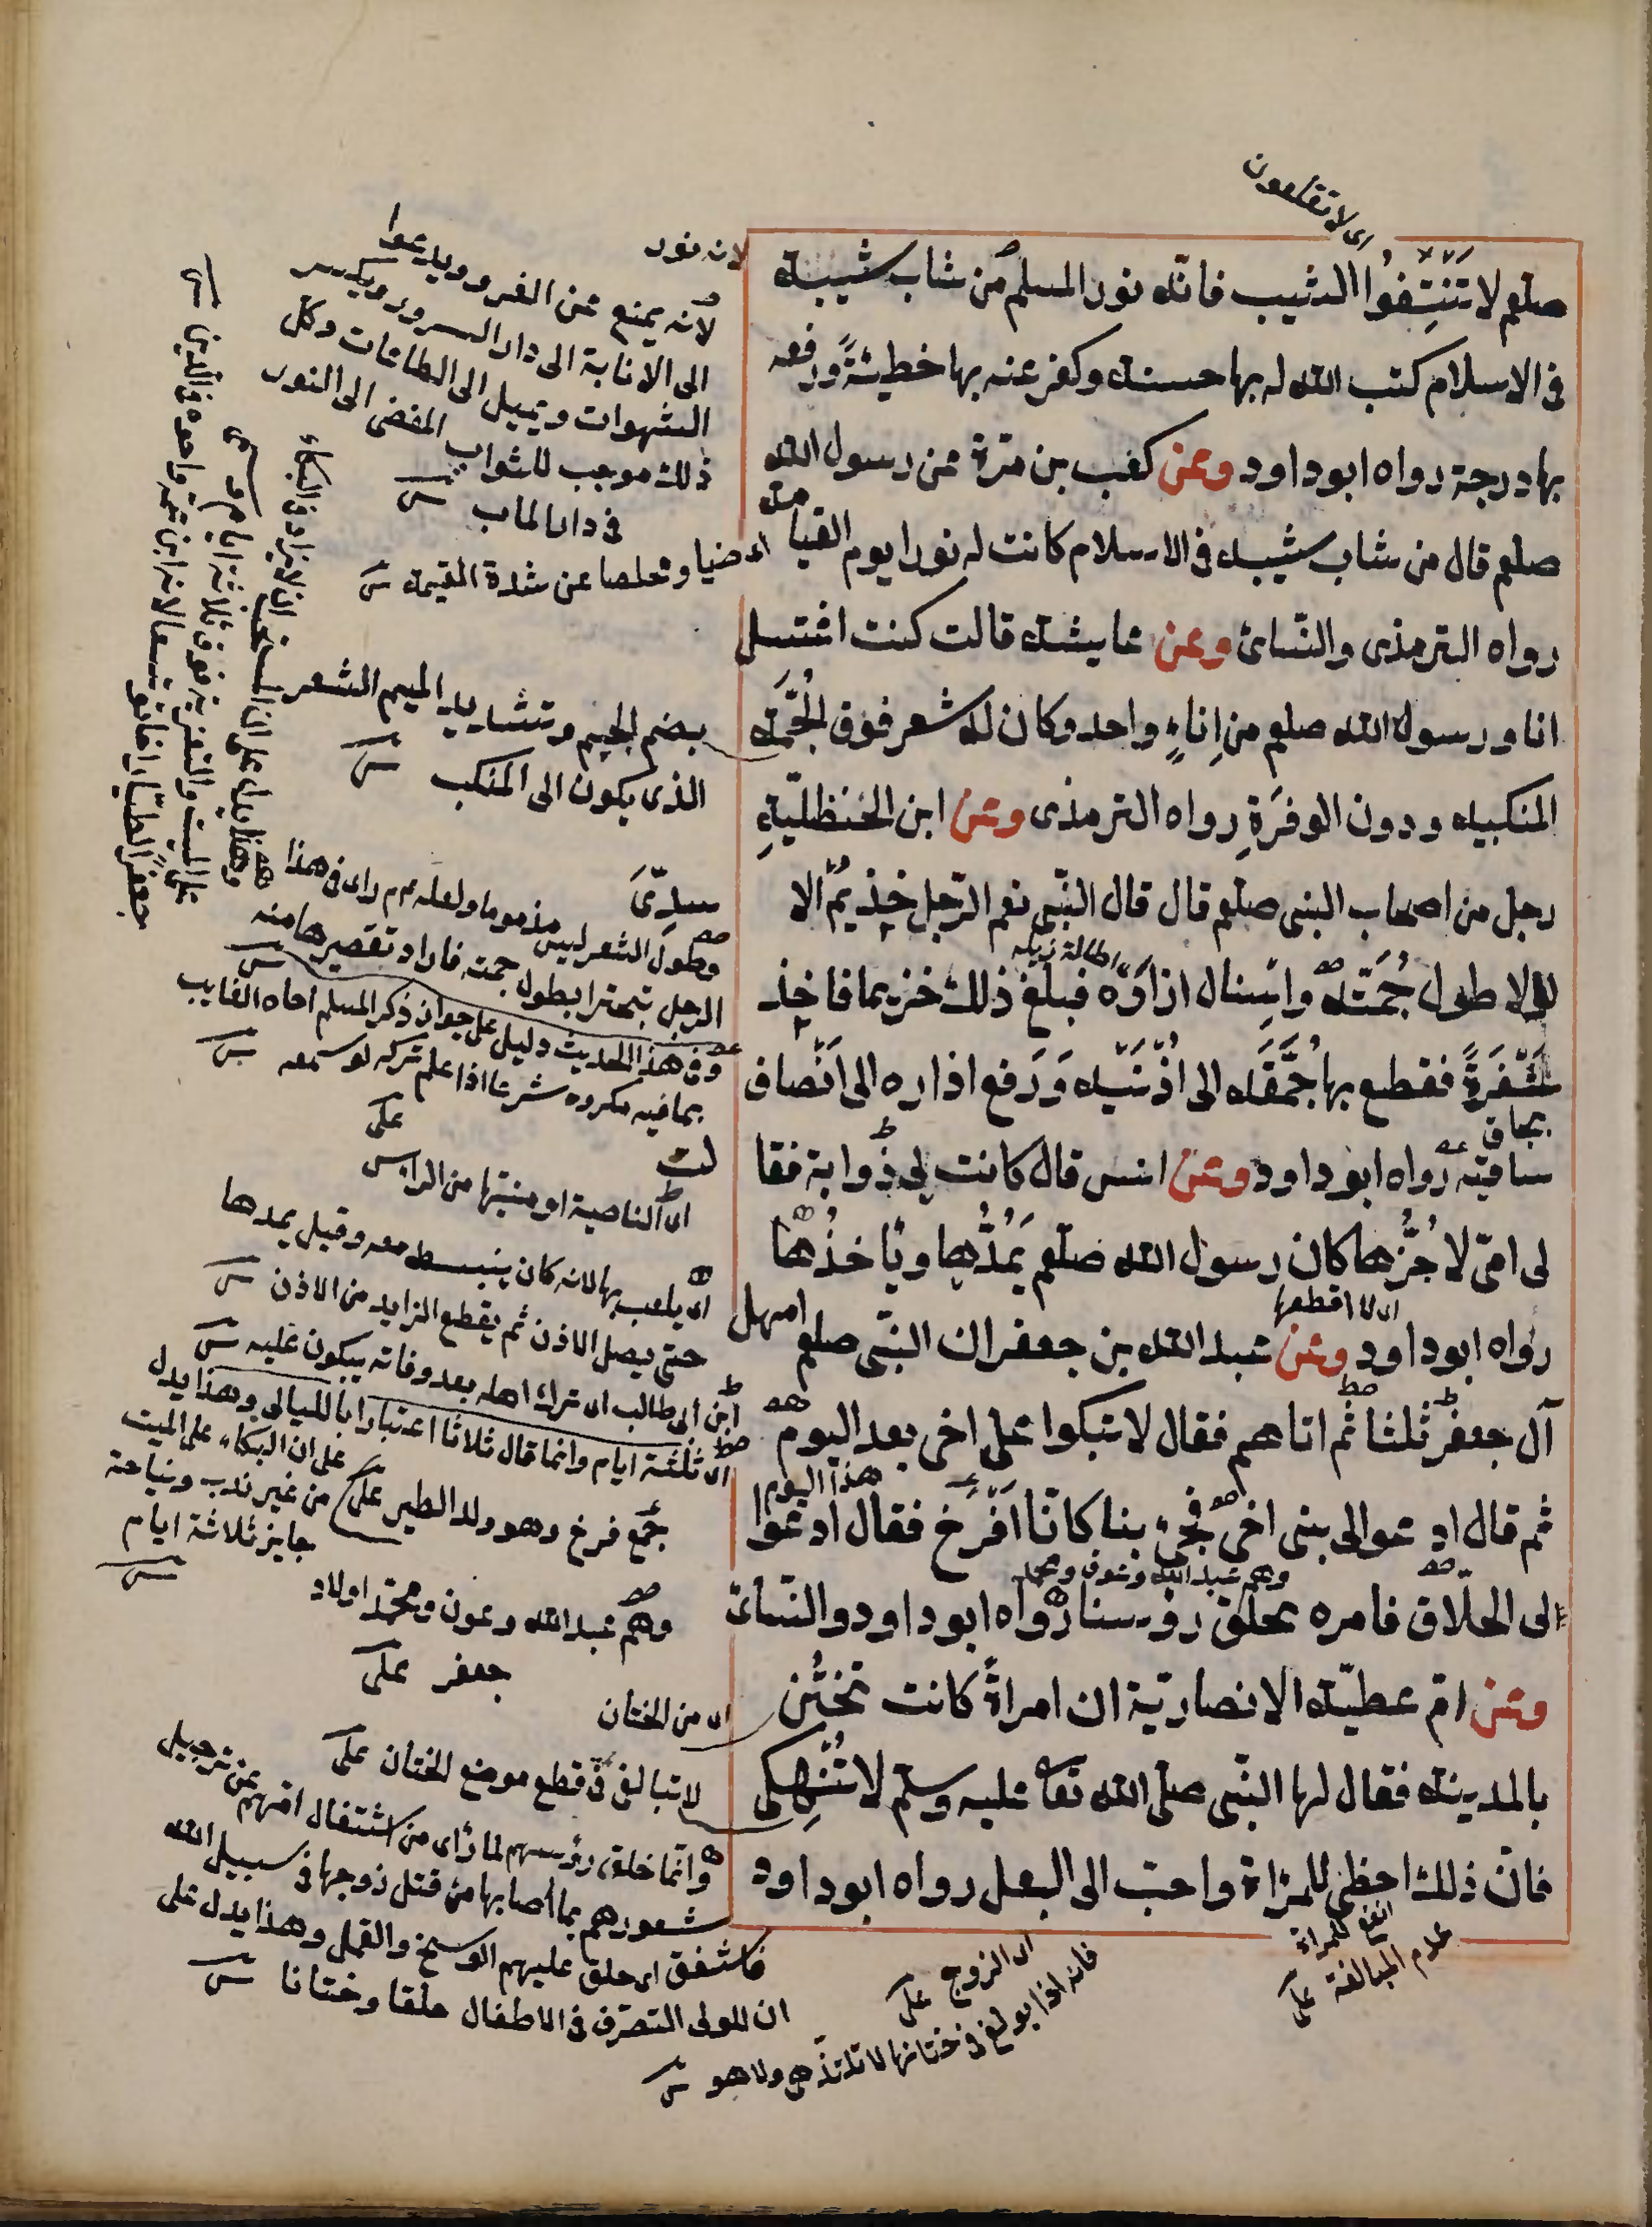 اى لا تقلعون
صلعم لا تَنْتِفُوا الشيب فانه نور المسلم من شاب شيبة
فى الاسلام كتب الله له بها حسنة وكفر عنه بها خطيئةً ورفعه
بها درجة رواه ابو داود وعن كعب بن مرة عن رسول الله
صلعم قال من شاب شيبة فى الاسلام كانت له نورا يوم القيامة
رواه الترمذى والنسائ وعن عايشة قالت كنت اغتسل
انا ورسول الله صلعم من اِناءٍ واحد وكان له شعر فوق الجُمَّة
المنكبيه ودون الوفرَةِ رواه الترمذى وعن ابن الحنظليّةِ
رجل من اصحاب النبى صلعم قال قال النّبى نعم الرّجل خذيمٌ الا
لولا طول جُمَّته واسبال ازاره فبلغ ذلك خزيما فاخذ
شَفْرَةً فقطع بها جُمَّته الى اُذُنَيه وَرَفع ازاره الى اَنْصاف
ساقيه رواه ابو داود وعن انس قال كانت لى ذُوابة فقا
لى امّى لا جُزُّها كان رسول الله صلعم يَمُدُّها وياخذُها
اى لا اقطعها
رواه ابو داود وعن عبد الله بن جعفر ان النبّى صلعم امهل
آل جعفر ثلثا ثم اتاهم فقال لا تبكوا على اخى بعد اليوم
هذا اليوم
ثم قال ادعوا الى بنى اخى فجئ بنا كانّا اَفْرُخ فقال ادعوا
وهم عبد الله وعون ومحمد
الى الحلّاق فامره بحلق رؤسنا رواه ابو داود والنّسائ
وعن امّ عطيّة الانصاريّة ان امراةً كانت تختن
بالمدينة فقال لها النّبى صلّى الله تعا عليه وسلّم لا تُنْهِكى
فانّ ذلك احظى للمراة واحبّ الى البعل رواه ابو داود
لانه نور
لانه يمنع عن الغرور ويدعوا
الى الانابة الى دار السرور ويكسر
الشهوات ويميل الى الطاعات وكل
ذلك موجب للثواب المفضى الى النور
فى دار الماب
اى ضيا ومخلصا عن شدة القيمة
بضم الجيم وتشديد الميم الشعر
الذى يكون الى المنكب
وطول الشعر ليس مذموما ولعله عم راى فى هذا
الرجل تبخترا بطول جمته فاراد تقصيرها منه
وفى هذا الحديث دليل على جواز ذكر المسلم اخاه الغايب
بما فيه مكروه شرعا اذا علم تركه لو سمعه
اى الناصية او منبتها من الراس
اى يلعب بها لانه كان ينبسط معه وقيل يمدها
حتى يصل الاذن ثم يقطع الزايد من الاذن
ابن ابى طالب اى ترك اهله بعد وفاته يبكون عليه
اى ثلثة ايام وانما قال ثلاثا اعتبارا بالليالى وهذا يدل
على ان البكاء على الميت
من غير ندب ونياحة
جايز ثلاثة ايام
جمع فرخ وهو ولد الطير
وهم عبد الله وعون ومحمّد اولاد
جعفر
اى من الختان
لا تبالغى فى قطع موضع الختان
وانّما حلق رؤسهم لما راى من اشتغال امّهم عن ترجيل
شعورهم بما اصابها من قتل زوجها فى سبيل الله
فاشفق اى حلق عليهم الوسخ والقمل وهذا يدل على
ان للولى التصرّف فى الاطفال حلقا وختانا
اى الزوج
فانه اذا بولغ فى ختانها لا تلتذّ هى ولا هو
انفع للمراة